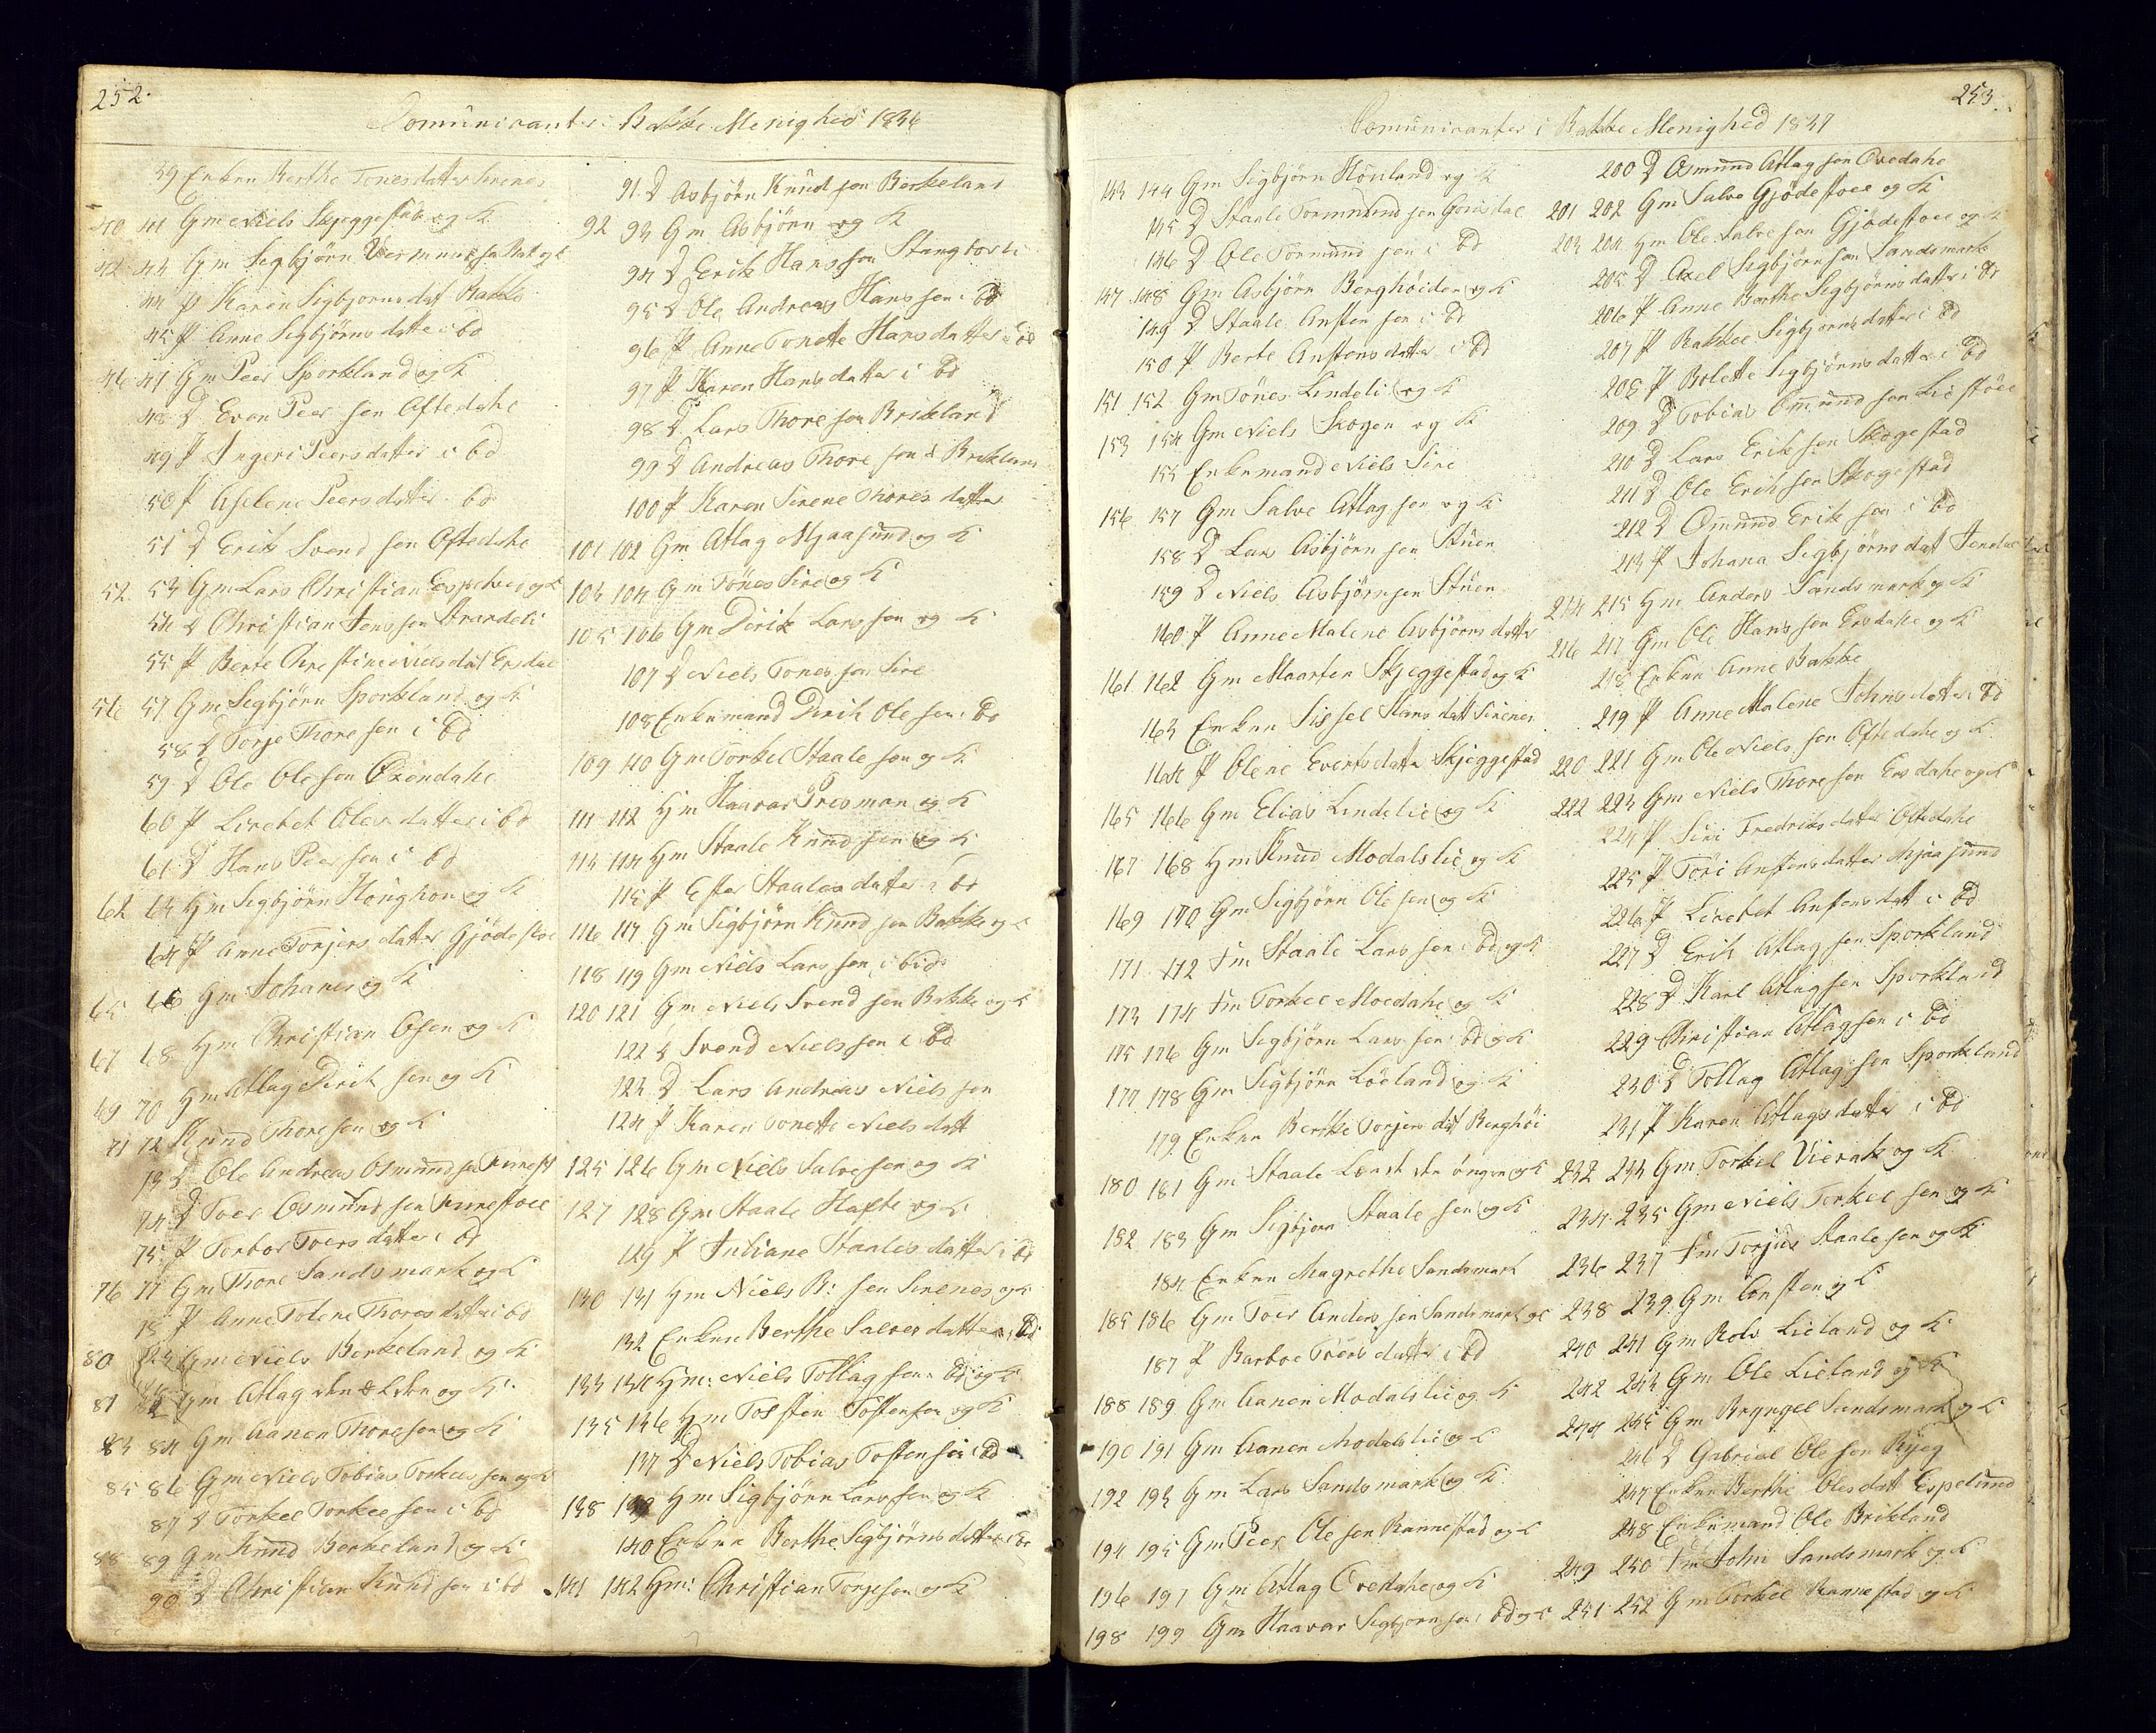 252.
Communicanter i Bakke Menighed 1836
39 Enken Berthe Tonesdatter Sirenes
40 41 Gm Niels Skjeggestad og K
42 43 Gm Sigbjörn og K
44 P Karen Sigbjornsdat Bakke
45 P Anne Sigbjörnsdatter i bd
46 47 Gm Peer Sporkland og K
48 D Even Peersen Oftedahl
49 P Ingeri Peersdatter i bd
50 P Aselene Peersdatter bd
51 D Erik Svendsen Oftedahl
52 53 Gm Lars Christian Espetved og K
54 D Christian Jenssen
55 P Berte Christine Nielsdat Ersdal
56 57 Gm Sigbjörn Sporkland og K
58 D Torje Thoresen i bd
59 D Ole Olesen Oxendahl
60 P Lisebet Olesdatter i bd
61 D Hans Peersen i bd
62 63 Hm Sigbjörn Houghom og K
64 P Anne Torjersdatter Gjödestoel
65 66 Gm Johanes og K
67 68 Hm Christian Osen og K
69 70 Hm Atlag Dirik sen og K
71 72 Knud Thoresen og K
73 D Ole Andreas Osmundsen
74 D Toer Osmundsen
75 P Torbor Toersdatter i bd
76 77 Gm Thore Sandsmark og K
78 P Anne Tolene Thoresdatter i bd
80 Gm Niels Berkeland og K
81 82 Gm Atlag og K
83 84 Gm Aanen Thoresen og K
85 86 Gm Niels Tobias Torkelsen og K
87 D Torkel Torkelsen i bd
88 89 Gm Knud Berkeland og K
90 D Christian Knudsen i bd
91 D Asbjörn Knudsen Berkeland
92 93 Gm Asbjörn og K
94 D Erik Hanssen Stangborli
95 D Ole Andreas Hanssen i bd
96 P Anne Tonette Hansdatter i bd
97 P Karen Hansdatter i bd
98 D Lars Thoresen Brikland
99 D Andreas Thoresen i Brikland
100 P Karen Sirene Thoresdatter
101 102 Gm Atlag Mjaasund og K
103 104 Gm Tönes Sire og K
105 106 Gm Dirik Larssen og K
107 D Niels Tonessen Sire
108 Enkemand Dirik Olesen i bd
109 110 Gm Torkel Staalesen og K
111 112 Hm Haavar Presman og K
113 114 Hm Staale Knudsen og K
115 P Ester Staalesdatter i bd
116 117 Gm Sigbjörn Knudsen Bakke og K
118 119 Gm Niels Larssen i bd
120 121 Gm Niels Svendsen Bakke og K
122 D Svend Nielssen i bd
123 D Lars Andreas Nielssen
124 P Karen Tonette Nielsdatt
125 126 Gm Niels Salvesen og K
127 128 Gm Staale Hafte og K
129 P Juliane Staalesdatter i bd
130 131 Hm Niels R: sen Sirenes og K
132 Enken Berthe Salvesdatter i bd
133 134 Hm: Niels Tollagsen i bd og K
135 136 Hm Tosten Tostensen og K
137 D Niels Tobias Tostensen i bd
138 139 Hm Sigbjörn Larssen og K
140 Enken Berthe Sigbjörnsdatter i bd
141 142 Hm: Christian Torjesen og K
253.
Communicanter i Bakke Menighed 1837
143 144 Gm Sigbjörn Höiland og K
145 D Staale Tormundsen
146 D Ole Tormundsen i bd
147 148 Gm Asbjörn Berghöiden og K
149 D Staale Anstensen i bd
150 P Berte Anstensdatter i bd
151 152 Gm Tönes Lindeli og K
153 154 Gm Niels Skogen og K
155 Enkemand Niels Sire
156 157 Gm Salve Atlagsen og K
158 D Lars Asbjörnsen Stuen
159 D Niels Asbjörnsen Stuen
160 P Anne Malene Asbjörnsdatter
161 162 Gm Maarten Skjeggestad og K
163 Enken Sissel Hansdatt Sirenes
164 P Olene Evertsdatter Skjeggestad
165 166 Gm Elias Lindelie og K
167 168 Hm Knud Modalslie og K
169 170 Gm Sigbjörn Olesen og K
171 172 Fm Staale Larssen i bd og K
173 174 Fm Torkel Moedahl og K
175 176 Gm Sigbjörn Larssen bd og K
177 178 Gm Sigbjörn Löeland og K
179 Enken Berthe Torjersdat Berghöi
180 181 Gm Staale den öngre og K
182 183 Gm Sigbjörn Staalesen og K
184 Enken Magrethe Sandsmark
185 186 Gm Toer Anderssen Sandsmark og K
187 P Barbro Toersdatter i bd
188 189 Gm Aanen Modalslie og K
190 191 Gm Aanen Modalslie og K
192 193 Gm Lars Sandsmark og K
194 195 Gm Peer Olesen Rannestad og K
196 197 Gm Atlag Ovedahl og K
198 199 Gm Haavar Sigbjörnsen i bd og K
200 D Osmund Atlagsen Ovedahl
201 202 Gm Salve Gjödestoel og K
203 204 Hm Ole Salvesen Gjödestoel og K
205 D Axel Sigbjörnsen Sandsmark
206 P Anne Berthe Sigbjörnsdatter i bd
207 P Rakkel Sigbjörnsdatter i bd
208 P Bolette Sigbjörnsdatter i bd
209 D Tobias Omundsen Liestöel
210 D Lars Eriksen Skogestad
211 D Ole Eriksen Skogestad
212 D Omund Eriksen i bd
213 P Johana Sigbjörnsdat
214 215 Hm Anders Sandsmark og K
216 217 Gm Ole Hanssen Ersdahl og K
218 Enken Anne Bakke
219 P Anne Malene Johnsdatter i bd
220 221 Gm Ole Nielssen Oftedahl og K
222 223 Gm Niels Thoresen Ersdahl og K
224 P Siri Fredriksdatter Oftedahl
225 P Töri Anstensdatter Mjaasund
226 P Lisebet Anstensdatt i bd
227 D Erik Atlagsen Sporkland
228 D Karl Atlagsen Sporkland
229 Christian Atlagsen i bd
230 D Tollag Atlagsen Sporkland
231 P Karen Atlagsdatter i bd
232 233 Gm Torkel Vierak og K
234 235 Gm Niels Torkelsen og K
236 237 Fm Torjus Staalesen og K
238 239 Gm Onsten og K
240 241 Gm Rolv Lieland og K
242 243 Gm Ole Lieland og K
244 245 Gm Bryngel Sandsmark og K
246 D Gabriel Olesen Ryeg
247 Enken Berthe Olesdatt Espelund
248 Enkemand Ole Brikland
249 250 Fm John Sandsmark og K
251 252 Gm Torkel Rannestad og K